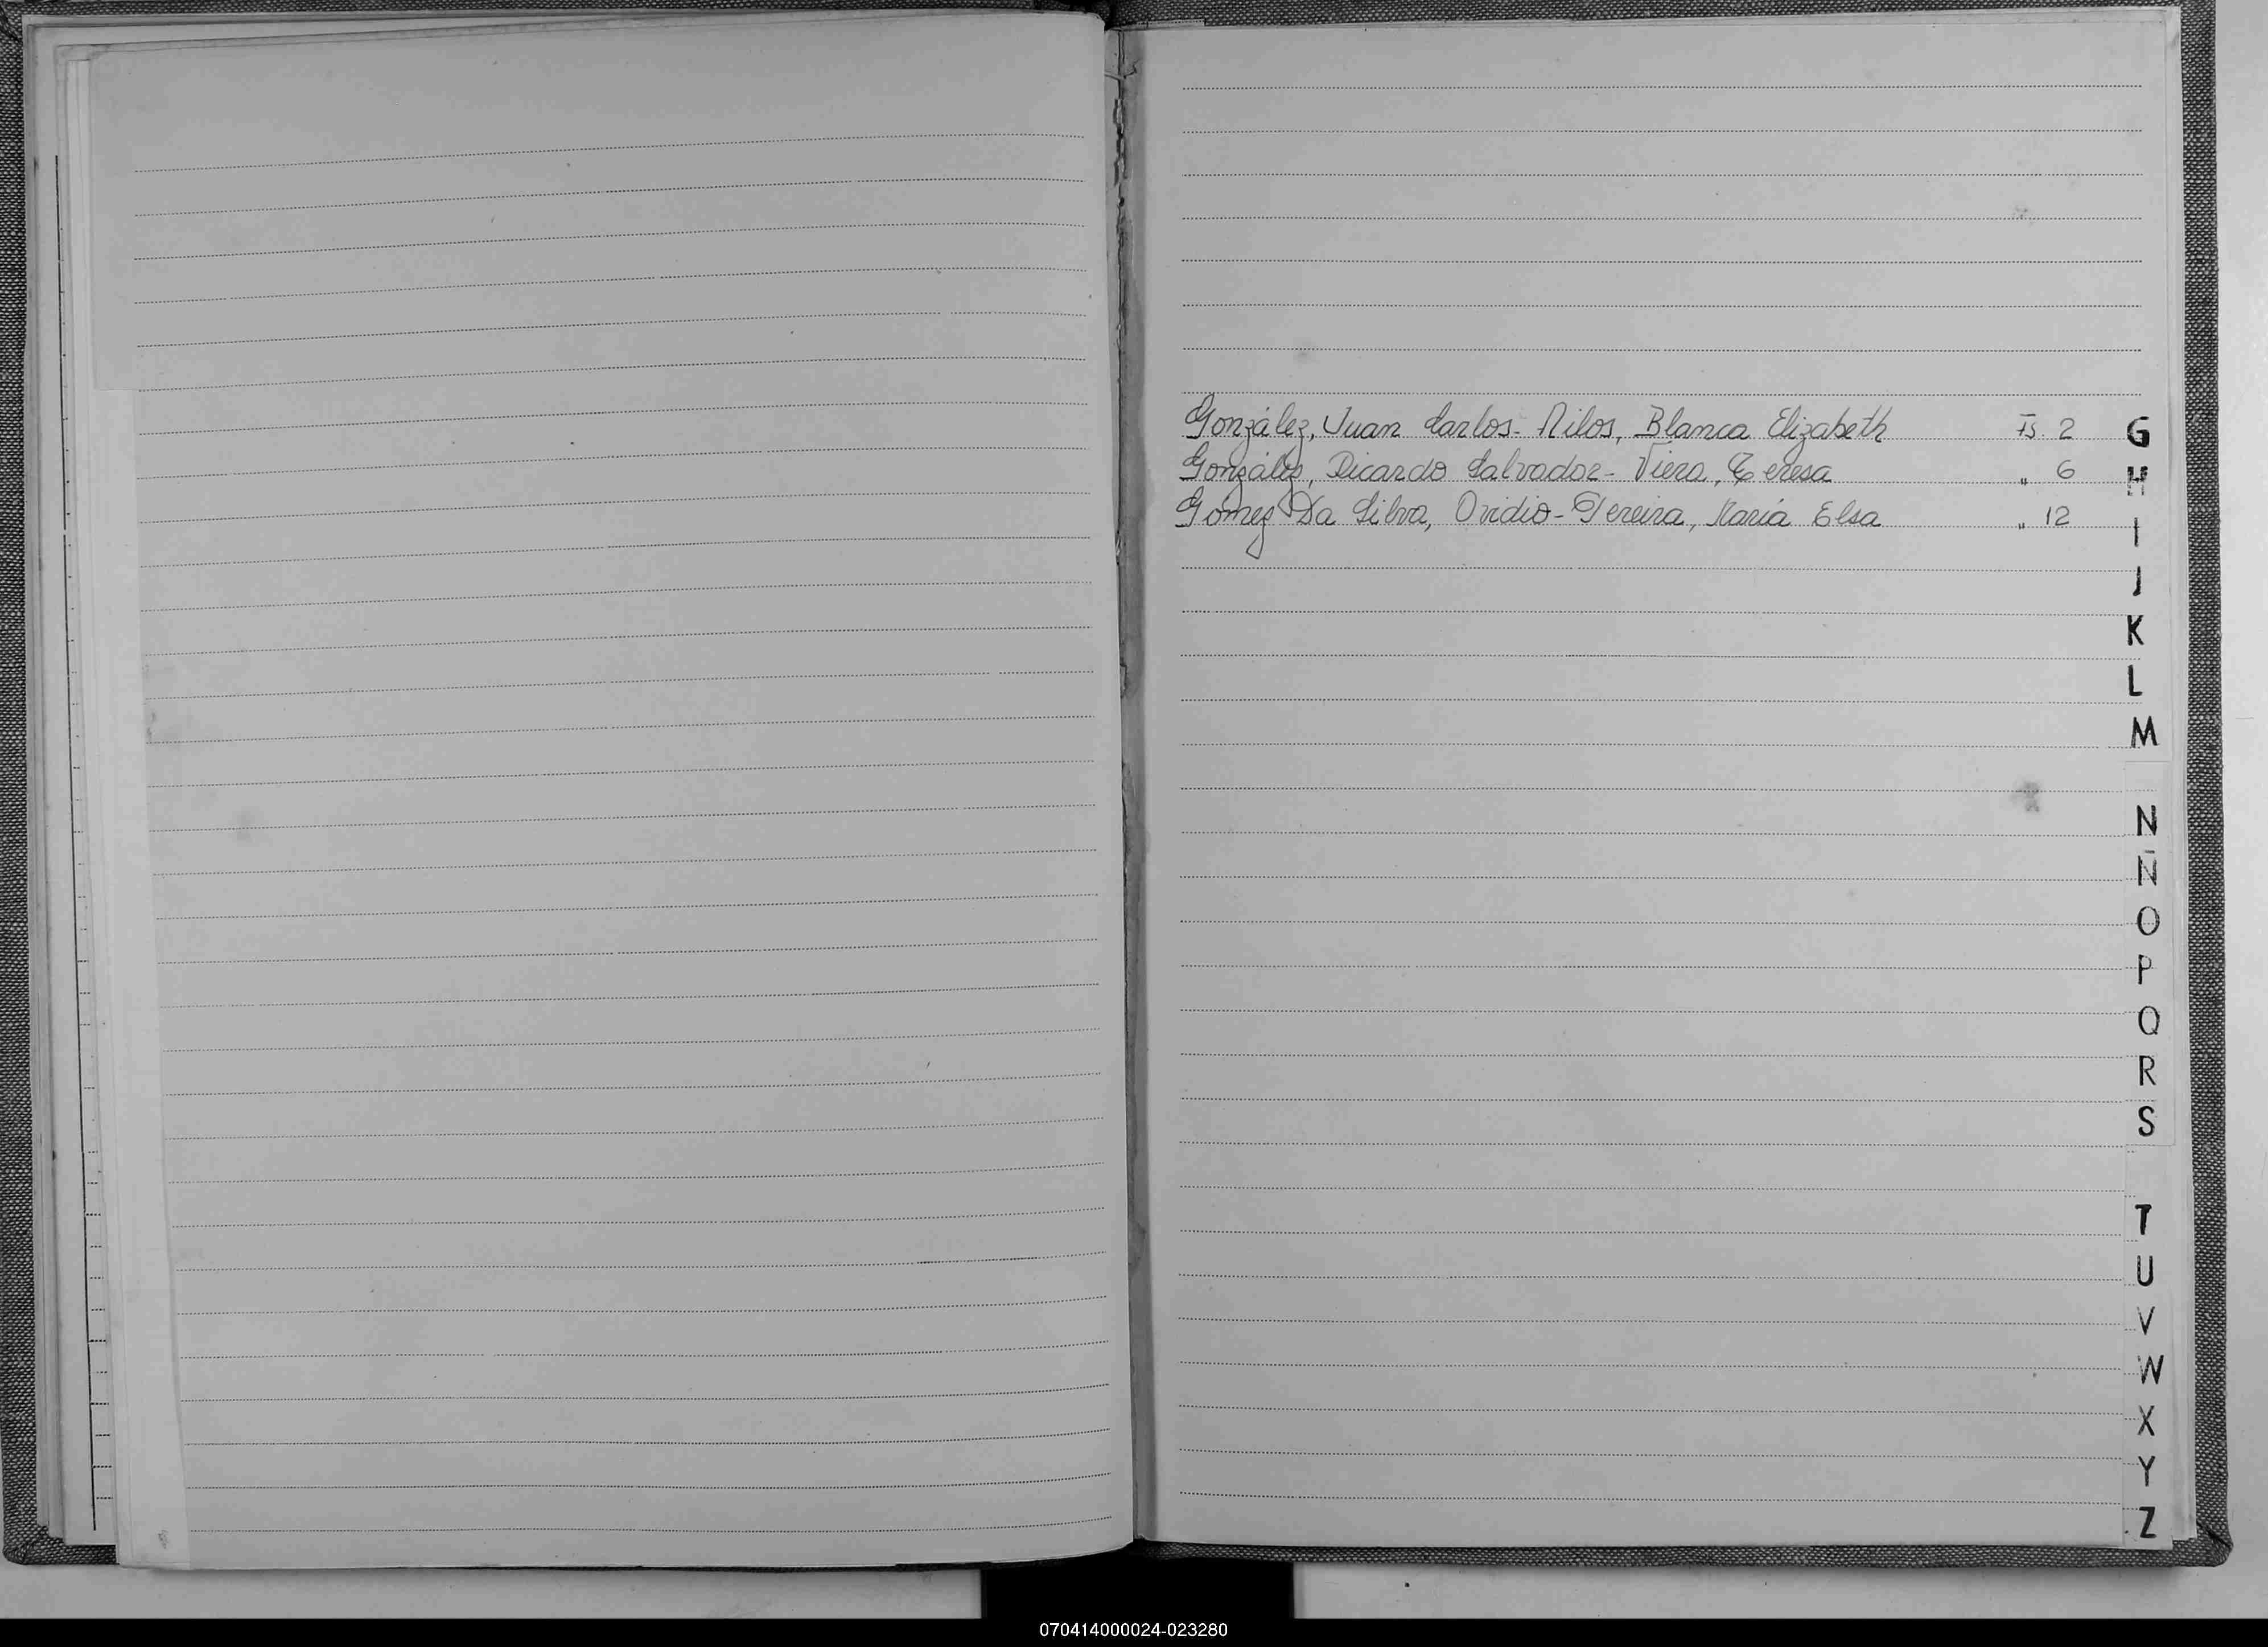 González, Juan Carlos - Nilos, Blanca Elizabeth Fs 2 G
González, Ricardo Salvador - Viera, Teresa " 6 H
Gomez Da Silva, Ovidio - Pereira, María Elsa " 12 I
J
K
L
M
N
Ñ
O
P
Q
R
S
T
U
V
W
X
Y
Z
070414000024-023280